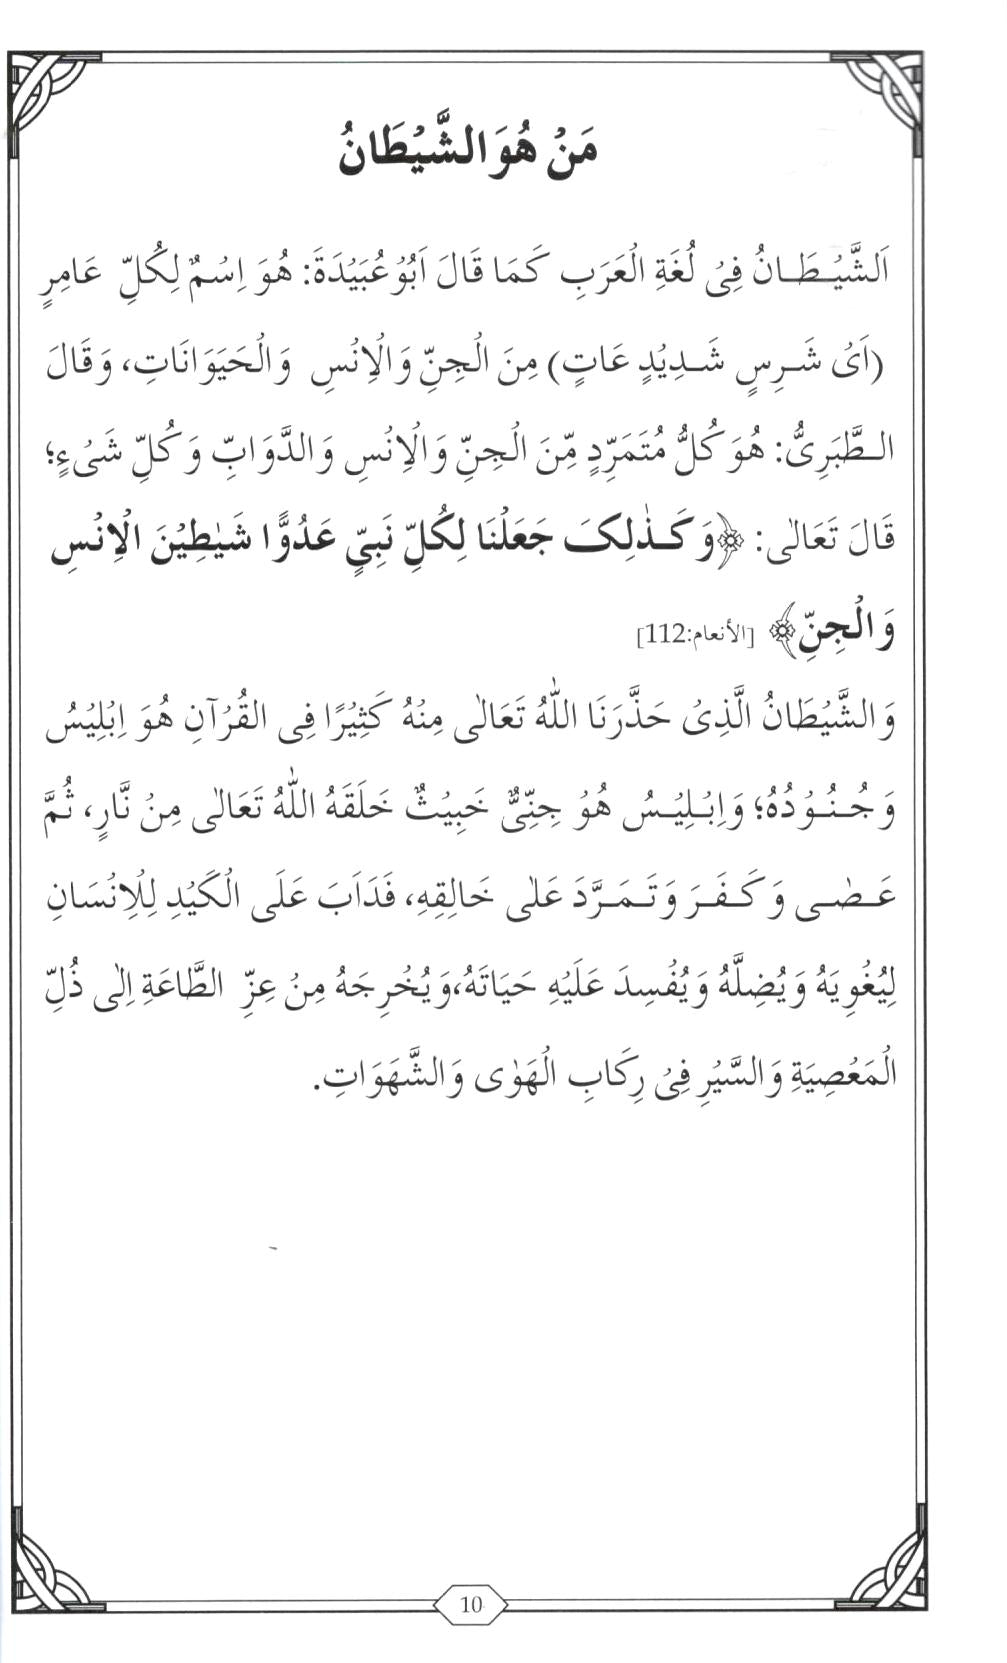 مَنْ هُوَ الشَّيْطَانُ
اَلشَّيْطَانُ فِيْ لُغَةِ الْعَرَبِ كَمَا قَالَ اَبُوْ عُبَيْدَةَ: هُوَ اِسْمٌ لِكُلِّ عَامِرٍ
(اَىْ شَرِسٍ شَدِيْدٍ عَاتٍ) مِنَ الْجِنِّ وَالْاِنْسِ وَالْحَيَوَانَاتِ، وَقَالَ
الطَّبَرِىُّ: هُوَ كُلُّ مُتَمَرِّدٍ مِّنَ الْجِنِّ وَالْاِنْسِ وَالدَّوَابِّ وَكُلِّ شَىْءٍ؛
قَالَ تَعَالٰى: ﴿وَكَذٰلِكَ جَعَلْنَا لِكُلِّ نَبِيٍّ عَدُوًّا شَيٰطِيْنَ الْاِنْسِ
وَالْجِنِّ﴾ [الأنعام:112]
وَالشَّيْطَانُ الَّذِىْ حَذَّرَنَا اللّٰهُ تَعَالٰى مِنْهُ كَثِيْرًا فِى الْقُرْآنِ هُوَ اِبْلِيْسُ
وَجُنُوْدُهُ؛ وَاِبْلِيْسُ هُوْ جِنِّىٌّ خَبِيْثٌ خَلَقَهُ اللّٰهُ تَعَالٰى مِنْ نَّارٍ، ثُمَّ
عَصٰى وَكَفَرَ وَتَمَرَّدَ عَلٰى خَالِقِهِ، فَدَاَبَ عَلَى الْكَيْدِ لِلْاِنْسَانِ
لِيُغْوِيَهُ وَيُضِلَّهُ وَيُفْسِدَ عَلَيْهِ حَيَاتَهُ،وَيُخْرِجَهُ مِنْ عِزِّ الطَّاعَةِ اِلٰى ذُلِّ
الْمَعْصِيَةِ وَالسَّيْرِ فِىْ رِكَابِ الْهَوٰى وَالشَّهَوَاتِ.
10